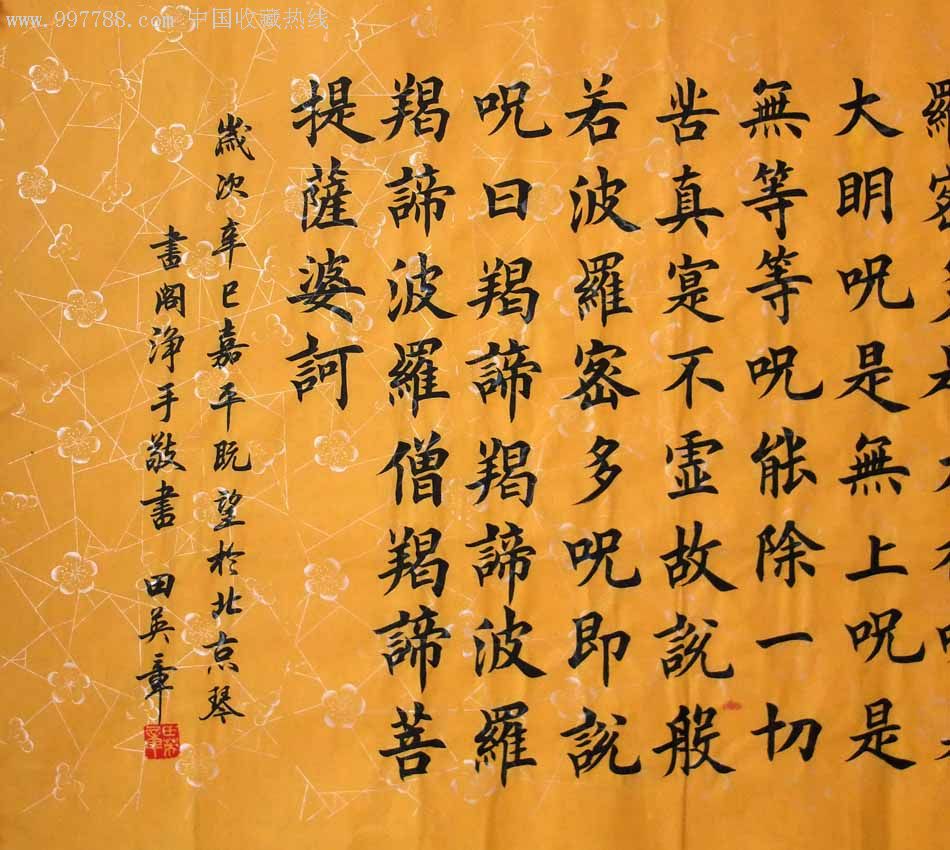 www.997788.com 中国收藏热线
大明呪是無上呪是
無等等呪能除一切
苦真寔不虛故說般
若波羅密多呪即說
呪曰羯諦羯諦波羅
羯諦波羅僧羯諦菩
提薩婆訶
歲次辛巳嘉平既望於北京琴
書閣淨手敬書 田英章